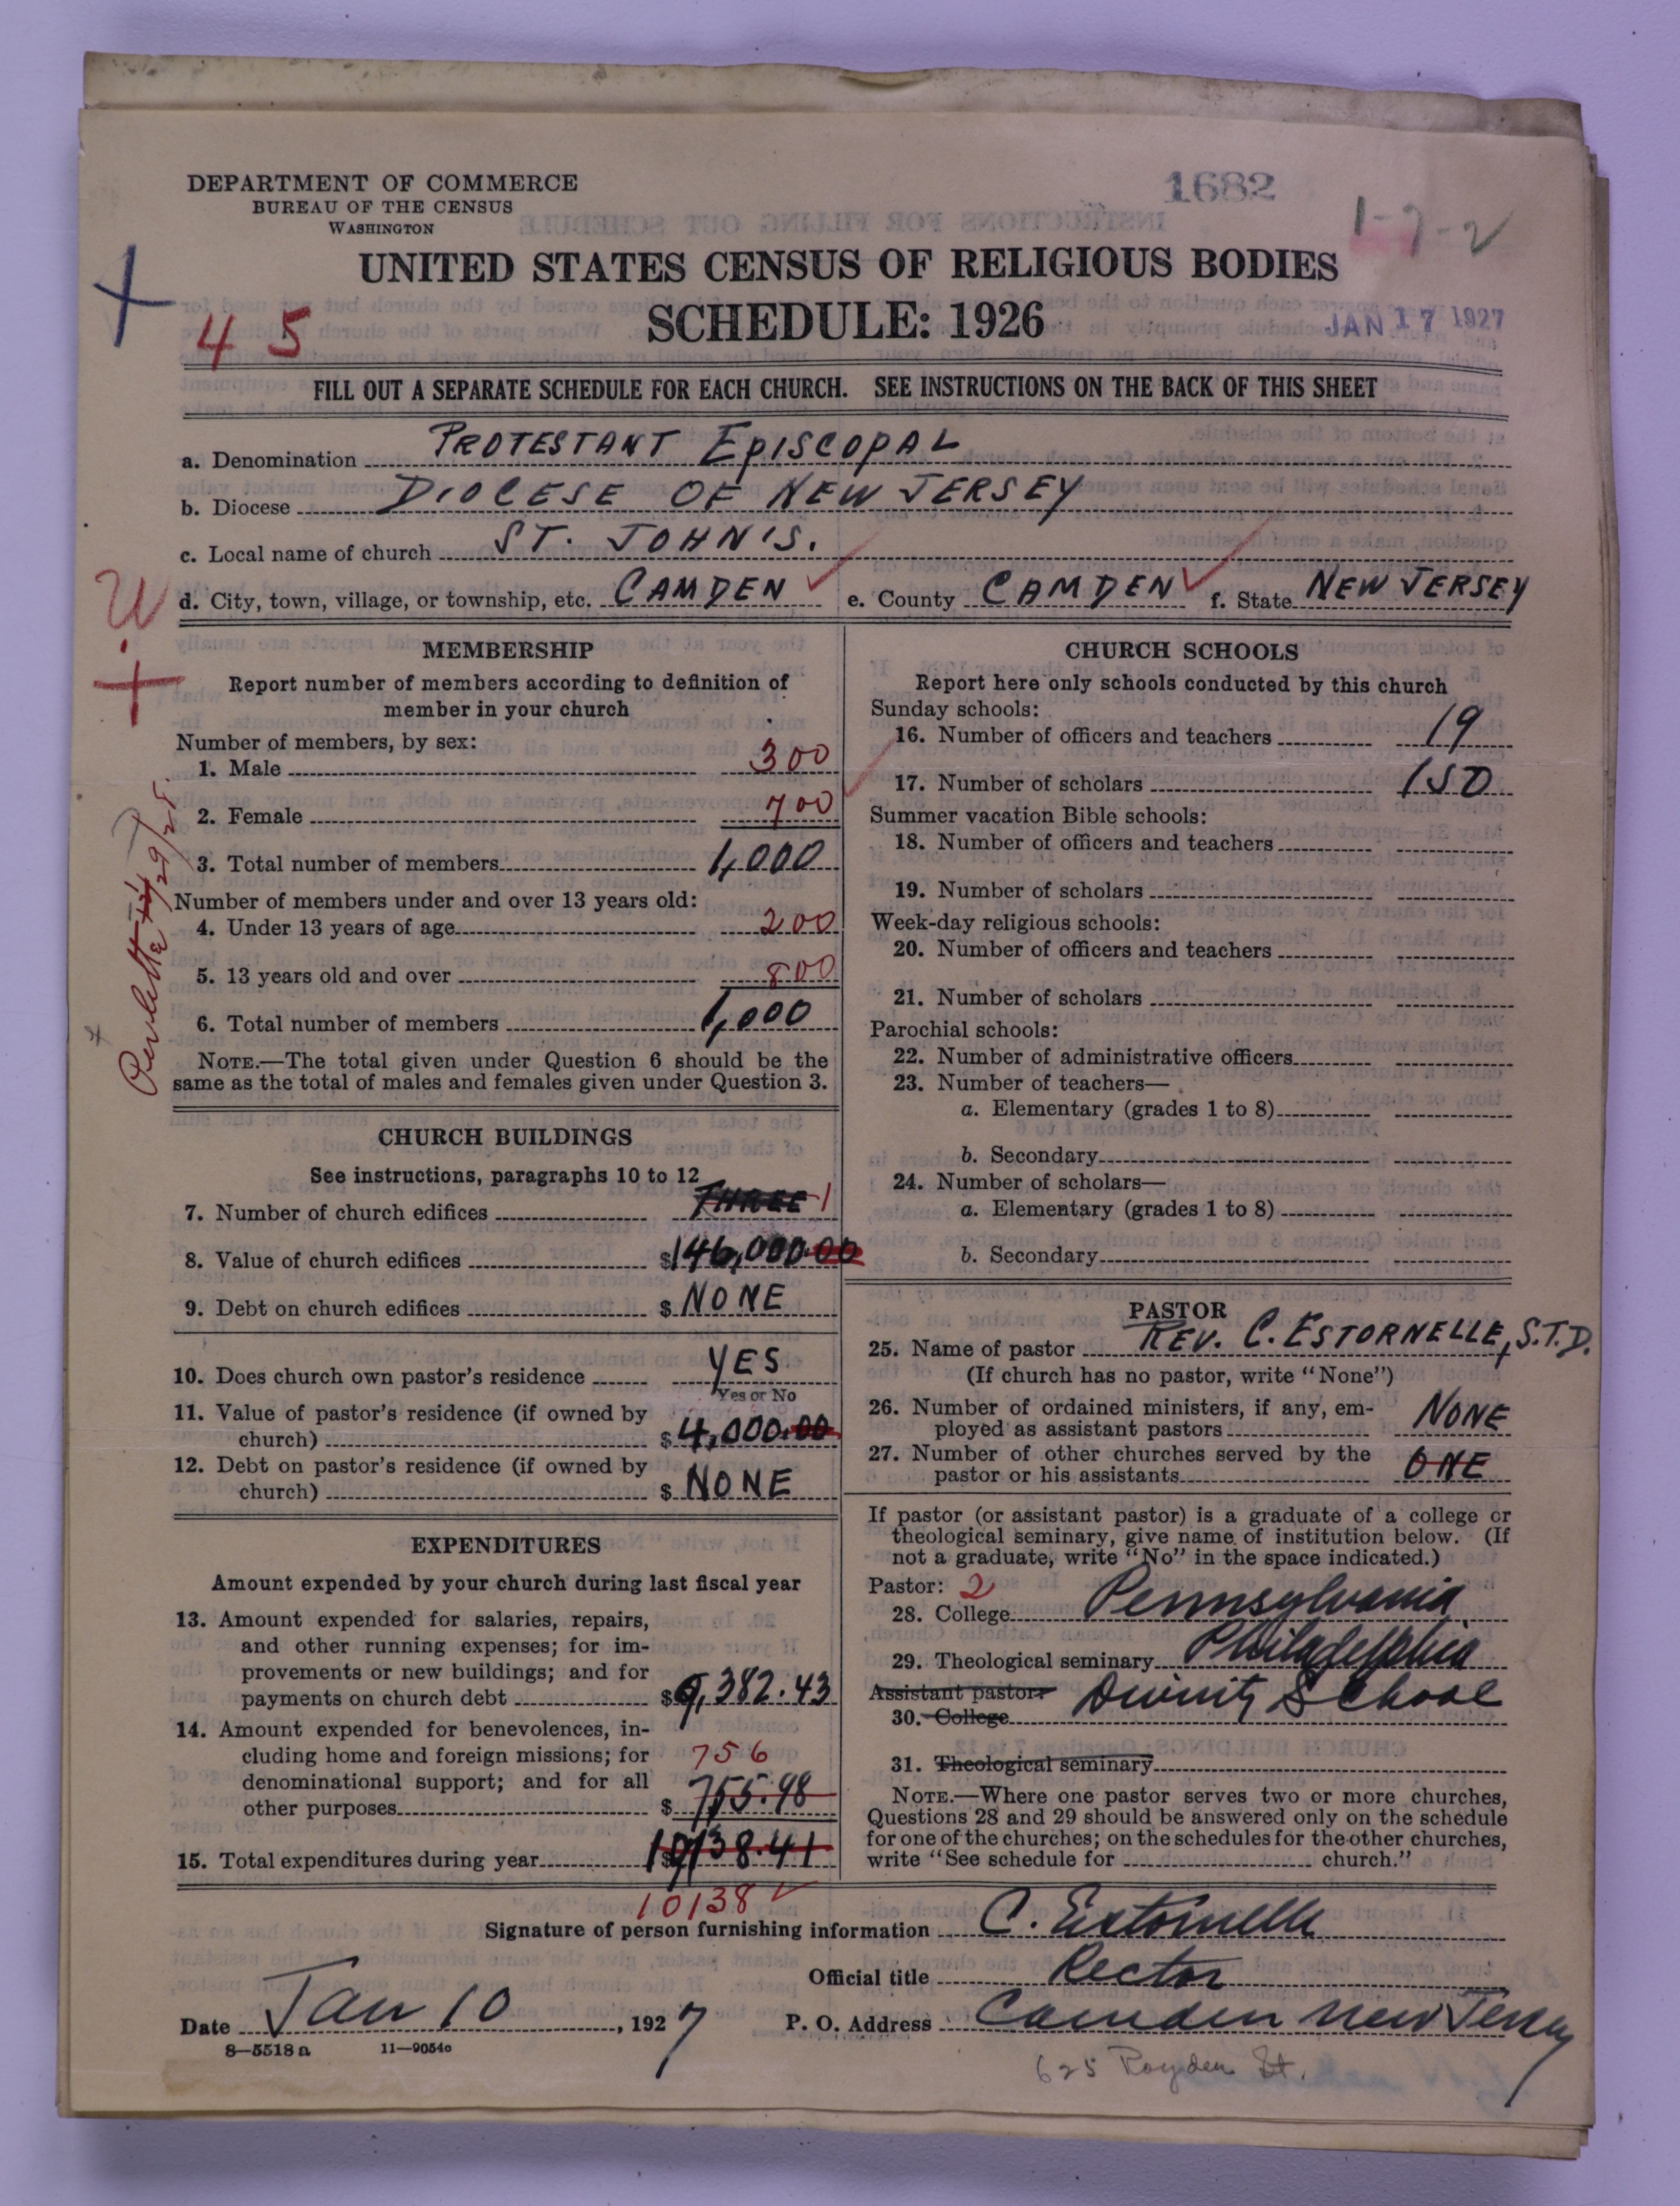 DEPARTMENT OF COMMERCE
BUREAU OF THE CENSUS
WASHINGTON
1682
1-7-2
UNITED STATES CENSUS OF RELIGIOUS BODIES
SCHEDULE: 1926
45
JAN 17 1927
FILL OUT A SEPARATE SCHEDULE FOR EACH CHURCH. SEE INSTRUCTIONS ON THE BACK OF THIS SHEET
a. Denomination PROTESTANT EPISCOPAL
b. Diocese DIOCESE OF NEW JERSEY
c. Local name of church ST. JOHN'S.
d. City, town, village, or township, etc. CAMDEN e. County CAMDEN f. State NEW JERSEY
MEMBERSHIP
Report number of members according to definition of
member in your church
Number of members, by sex:
1. Male 300
2. Female 700
3. Total number of members 1,000
Number of members under and over 13 years old:
4. Under 13 years of age 200
5. 13 years old and over 800
6. Total number of members 1,000
NOTE.—The total given under Question 6 should be the
same as the total of males and females given under Question 3.
CHURCH BUILDINGS
See instructions, paragraphs 10 to 12
7. Number of church edifices THREE 1
8. Value of church edifices $146,000.00
9. Debt on church edifices $ NONE
10. Does church own pastor's residence YES
Yes or No
11. Value of pastor's residence (if owned by
church) $4,000.00
12. Debt on pastor's residence (if owned by
church) $ NONE
EXPENDITURES
Amount expended by your church during last fiscal year
13. Amount expended for salaries, repairs,
and other running expenses; for im-
provements or new buildings; and for
payments on church debt $9,382.43
14. Amount expended for benevolences, in-
cluding home and foreign missions; for 756
denominational support; and for all
other purposes $755.98
15. Total expenditures during year $10138.41
10138
CHURCH SCHOOLS
Report here only schools conducted by this church
Sunday schools:
16. Number of officers and teachers 19
17. Number of scholars 150
Summer vacation Bible schools:
18. Number of officers and teachers
19. Number of scholars
Week-day religious schools:
20. Number of officers and teachers
21. Number of scholars
Parochial schools:
22. Number of administrative officers
23. Number of teachers—
a. Elementary (grades 1 to 8)
b. Secondary
24. Number of scholars—
a. Elementary (grades 1 to 8)
b. Secondary
PASTOR
25. Name of pastor REV. C. ESTORNELLE, S.T.D.
(If church has no pastor, write "None")
26. Number of ordained ministers, if any, em-
ployed as assistant pastors NONE
27. Number of other churches served by the
pastor or his assistants ONE
If pastor (or assistant pastor) is a graduate of a college or
theological seminary, give name of institution below. (If
not a graduate, write "No" in the space indicated.)
Pastor: 2
28. College Pennsylvania
29. Theological seminary Philadelphia
Assistant pastor: Divinity School
30. College
31. Theological seminary
NOTE.—Where one pastor serves two or more churches,
Questions 28 and 29 should be answered only on the schedule
for one of the churches; on the schedules for the other churches,
write "See schedule for church."
Signature of person furnishing information C. Estornelle
Official title Rector
Date Jan 10, 1927 P. O. Address Camden New Jersey
8—5518a 11—9054c
625 Royden St.